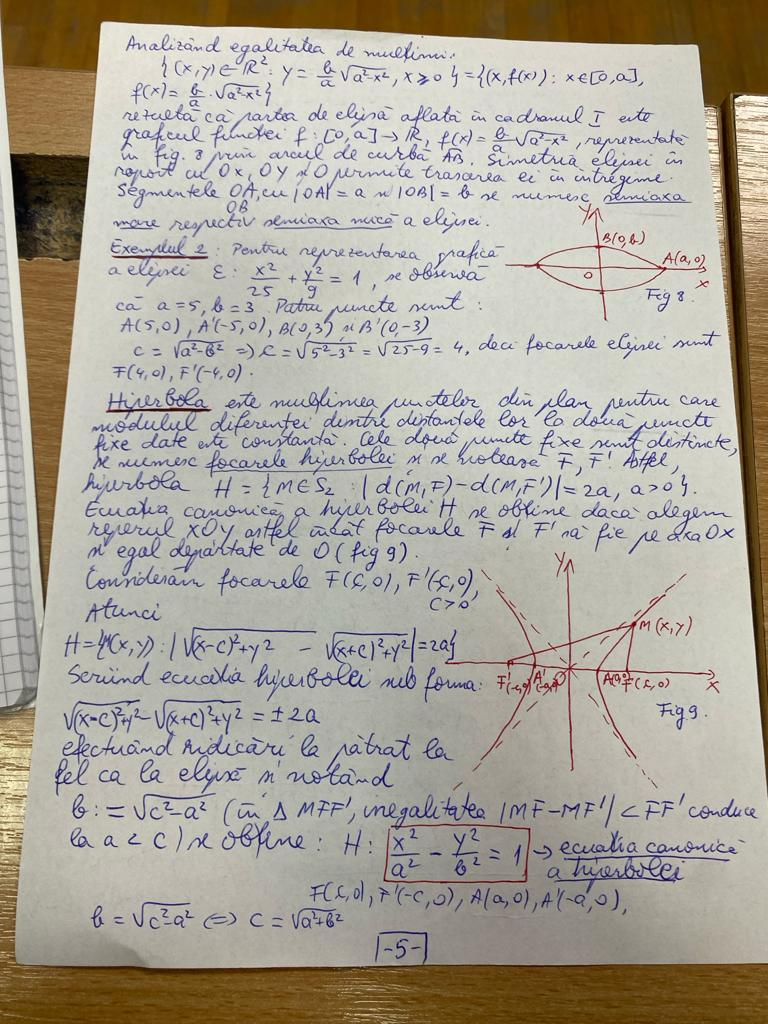 Analizând egalitatea de mulțimi:
{(x,y)∈ℝ²: y = b/a √(a²-x²), x ≥ 0} = {(x, f(x)) : x∈[0,a],
f(x) = b/a · √(a²-x²)}
rezultă că partea de elipsă aflată în cadranul I este
graficul funcției f : [0,a] → ℝ, f(x) = b/a √(a²-x²), reprezentată
în fig. 8 prin arcul de curbă AB. Simetria elipsei în
raport cu Ox, OY și O permite trasarea ei în întregime.
Segmentele OA, cu |OA| = a și |OB| = b se numesc semiaxa
OB
mare respectiv semiaxa mică a elipsei.
Exemplul 2: Pentru reprezentarea grafică
a elipsei E: x²/25 + y²/9 = 1, se observă
că a = 5, b = 3. Patru puncte sunt:
A(5,0), A'(-5,0), B(0,3) și B'(0,-3)
c = √(a²-b²) ⇒ c = √(5²-3²) = √(25-9) = 4, deci focarele elipsei sunt
F(4,0), F'(-4,0).
Y
B(0,b)
A(a,0)
O
X
Fig 8
Hiperbola este mulțimea punctelor din plan pentru care
modulul diferenței dintre distanțele lor la două puncte
fixe date este constantă. Cele două puncte fixe sunt distincte,
se numesc focarele hiperbolei și se notează F, F'. Astfel,
hiperbola H = {M∈S₂ : |d(M,F) - d(M,F')| = 2a, a>0}.
Ecuația canonică a hiperbolei H se obține dacă alegem
reperul XOY astfel încât focarele F și F' să fie pe axa Ox
și egal depărtate de O (fig 9).
Considerăm focarele F(c,0), F'(-c,0),
c>0
Atunci
H = {M(x,y) : |√((x-c)²+y²) - √((x+c)²+y²)| = 2a}
Scriind ecuația hiperbolei sub forma:
√((x-c)²+y²) - √((x+c)²+y²) = ±2a
efectuând ridicări la pătrat la
fel ca la elipsă și notând
Y
M(x,y)
F'(-c,0)
A'(-a,0)
O
A(a,0)
F(c,0)
X
Fig 9.
b := √(c²-a²) (în Δ MFF', inegalitatea |MF-MF'| < FF' conduce
la a < c) se obține: H: x²/a² - y²/b² = 1 → ecuația canonică
a hiperbolei
F(c,0), F'(-c,0), A(a,0), A'(-a,0),
b = √(c²-a²) ⇔ c = √(a²+b²)
-5-